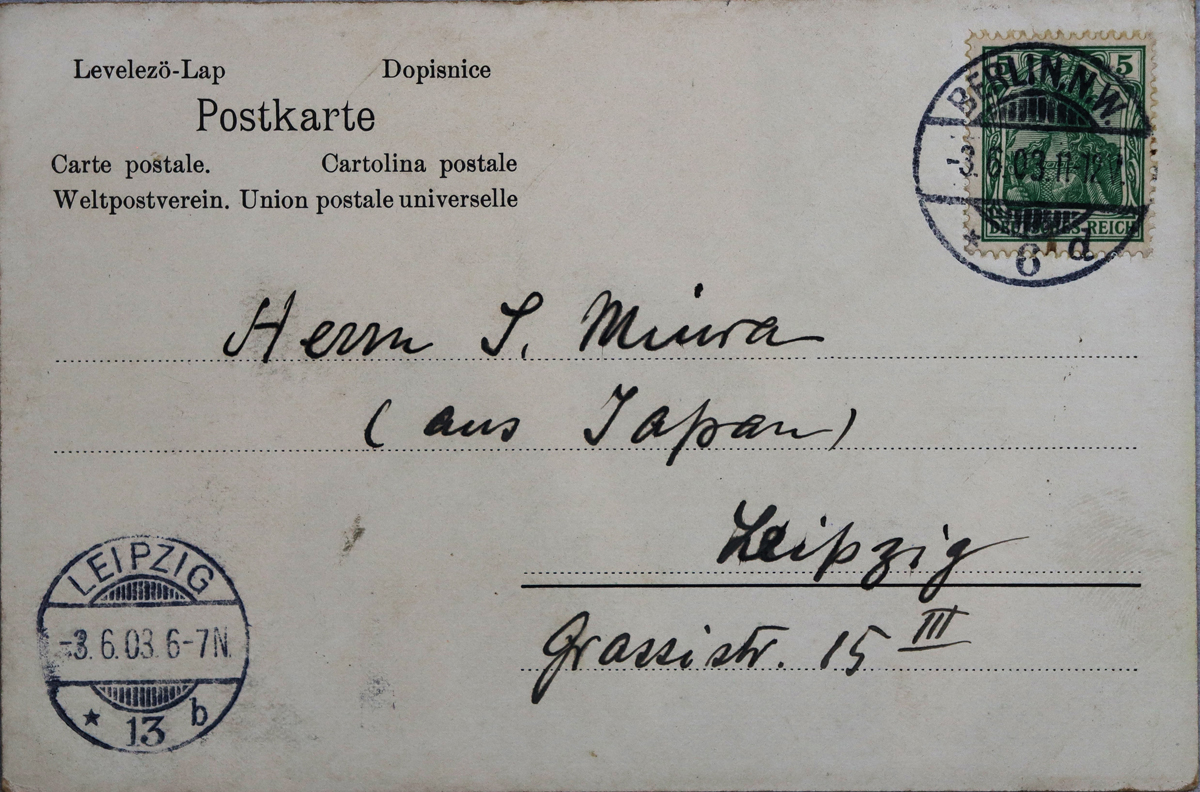 Levelezö-Lap Dopisnice
Postkarte
Carte postale. Cartolina postale
Weltpostverein. Union postale universelle
5 5
BERLIN.N.W.
-3.6.03.11-12V.
DEUTSCHES-REICH
* 6 d
Herrn S. Miura
(aus Japan)
Leipzig
Grassistr. 15 III
LEIPZIG
-3.6.03.6-7N.
* 13 b